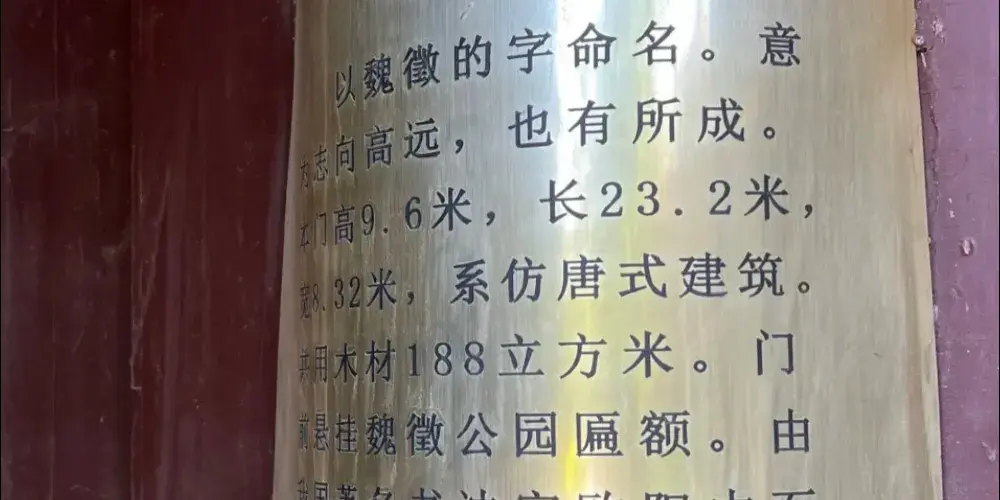 以魏徵的字命名。意
为志向高远，也有所成。
本门高9.6米，长23.2米，
宽8.32米，系仿唐式建筑。
共用木材188立方米。门
前悬挂魏徵公园匾额。由
我国著名书法家欧阳中石